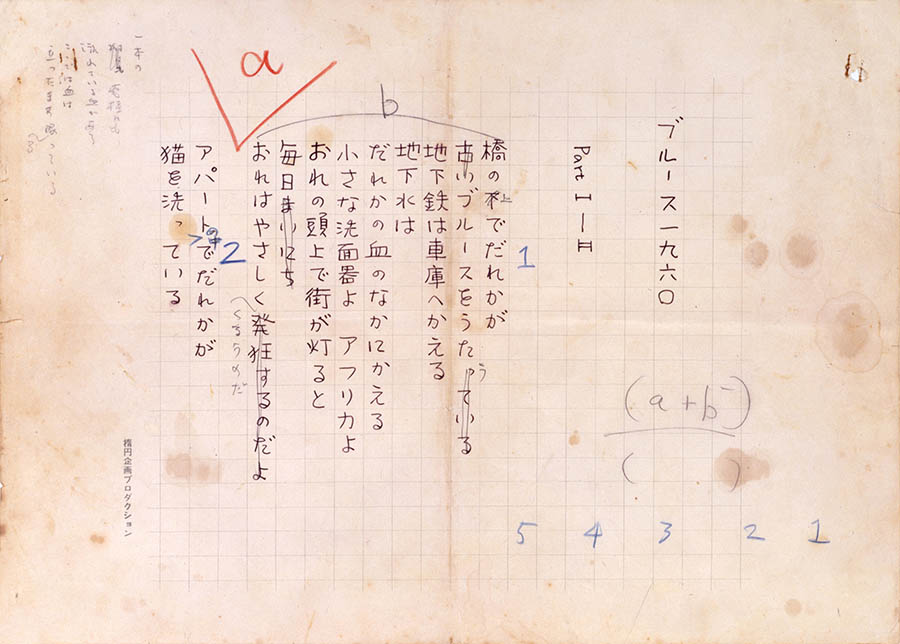 ブルース一九六〇
Part I—H
1
橋の下上でだれかが
古いブルースをうたっているう
地下鉄は車庫へかえる
地下水は
だれかの血のなかにかえる
小さな洗面器よ アフリカよ
おれの頭上で街が灯ると
毎日まいにち
おれはやさしく発狂するのだよ
くるうのだ
2
アパートの中でだれかが
猫を洗っている
a
b
一本の
流れている血がある
立ったまま眠っている
(a+b)
( )
5 4 3 2 1
楕円企画プロダクション